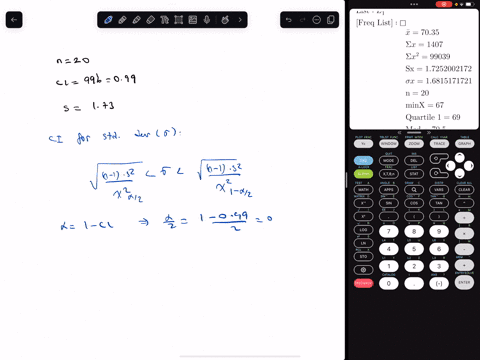 n=20
CL = 99% = 0.99
s = 1.73
CI for std. dev (σ):
√((n-1)·s² / χ²α/2) < σ < √((n-1)·s² / χ²1-α/2)
α = 1-CL ⇒ α/2 = (1-0.99)/2 = 0
[Freq List] : □
x̄ = 70.35
Σx = 1407
Σx² = 99039
Sx = 1.7252002172
σx = 1.6815171721
n = 20
minX = 67
Quartile 1 = 69
Y= WINDOW ZOOM TRACE GRAPH
2nd MODE DEL
ALPHA X,T,θ,n STAT
MATH APPS PRGM VARS CLEAR
x⁻¹ SIN COS TAN ^
x² , ( ) ÷
LOG 7 8 9 ×
LN 4 5 6 -
STO 1 2 3 +
0 . (-) ENTER